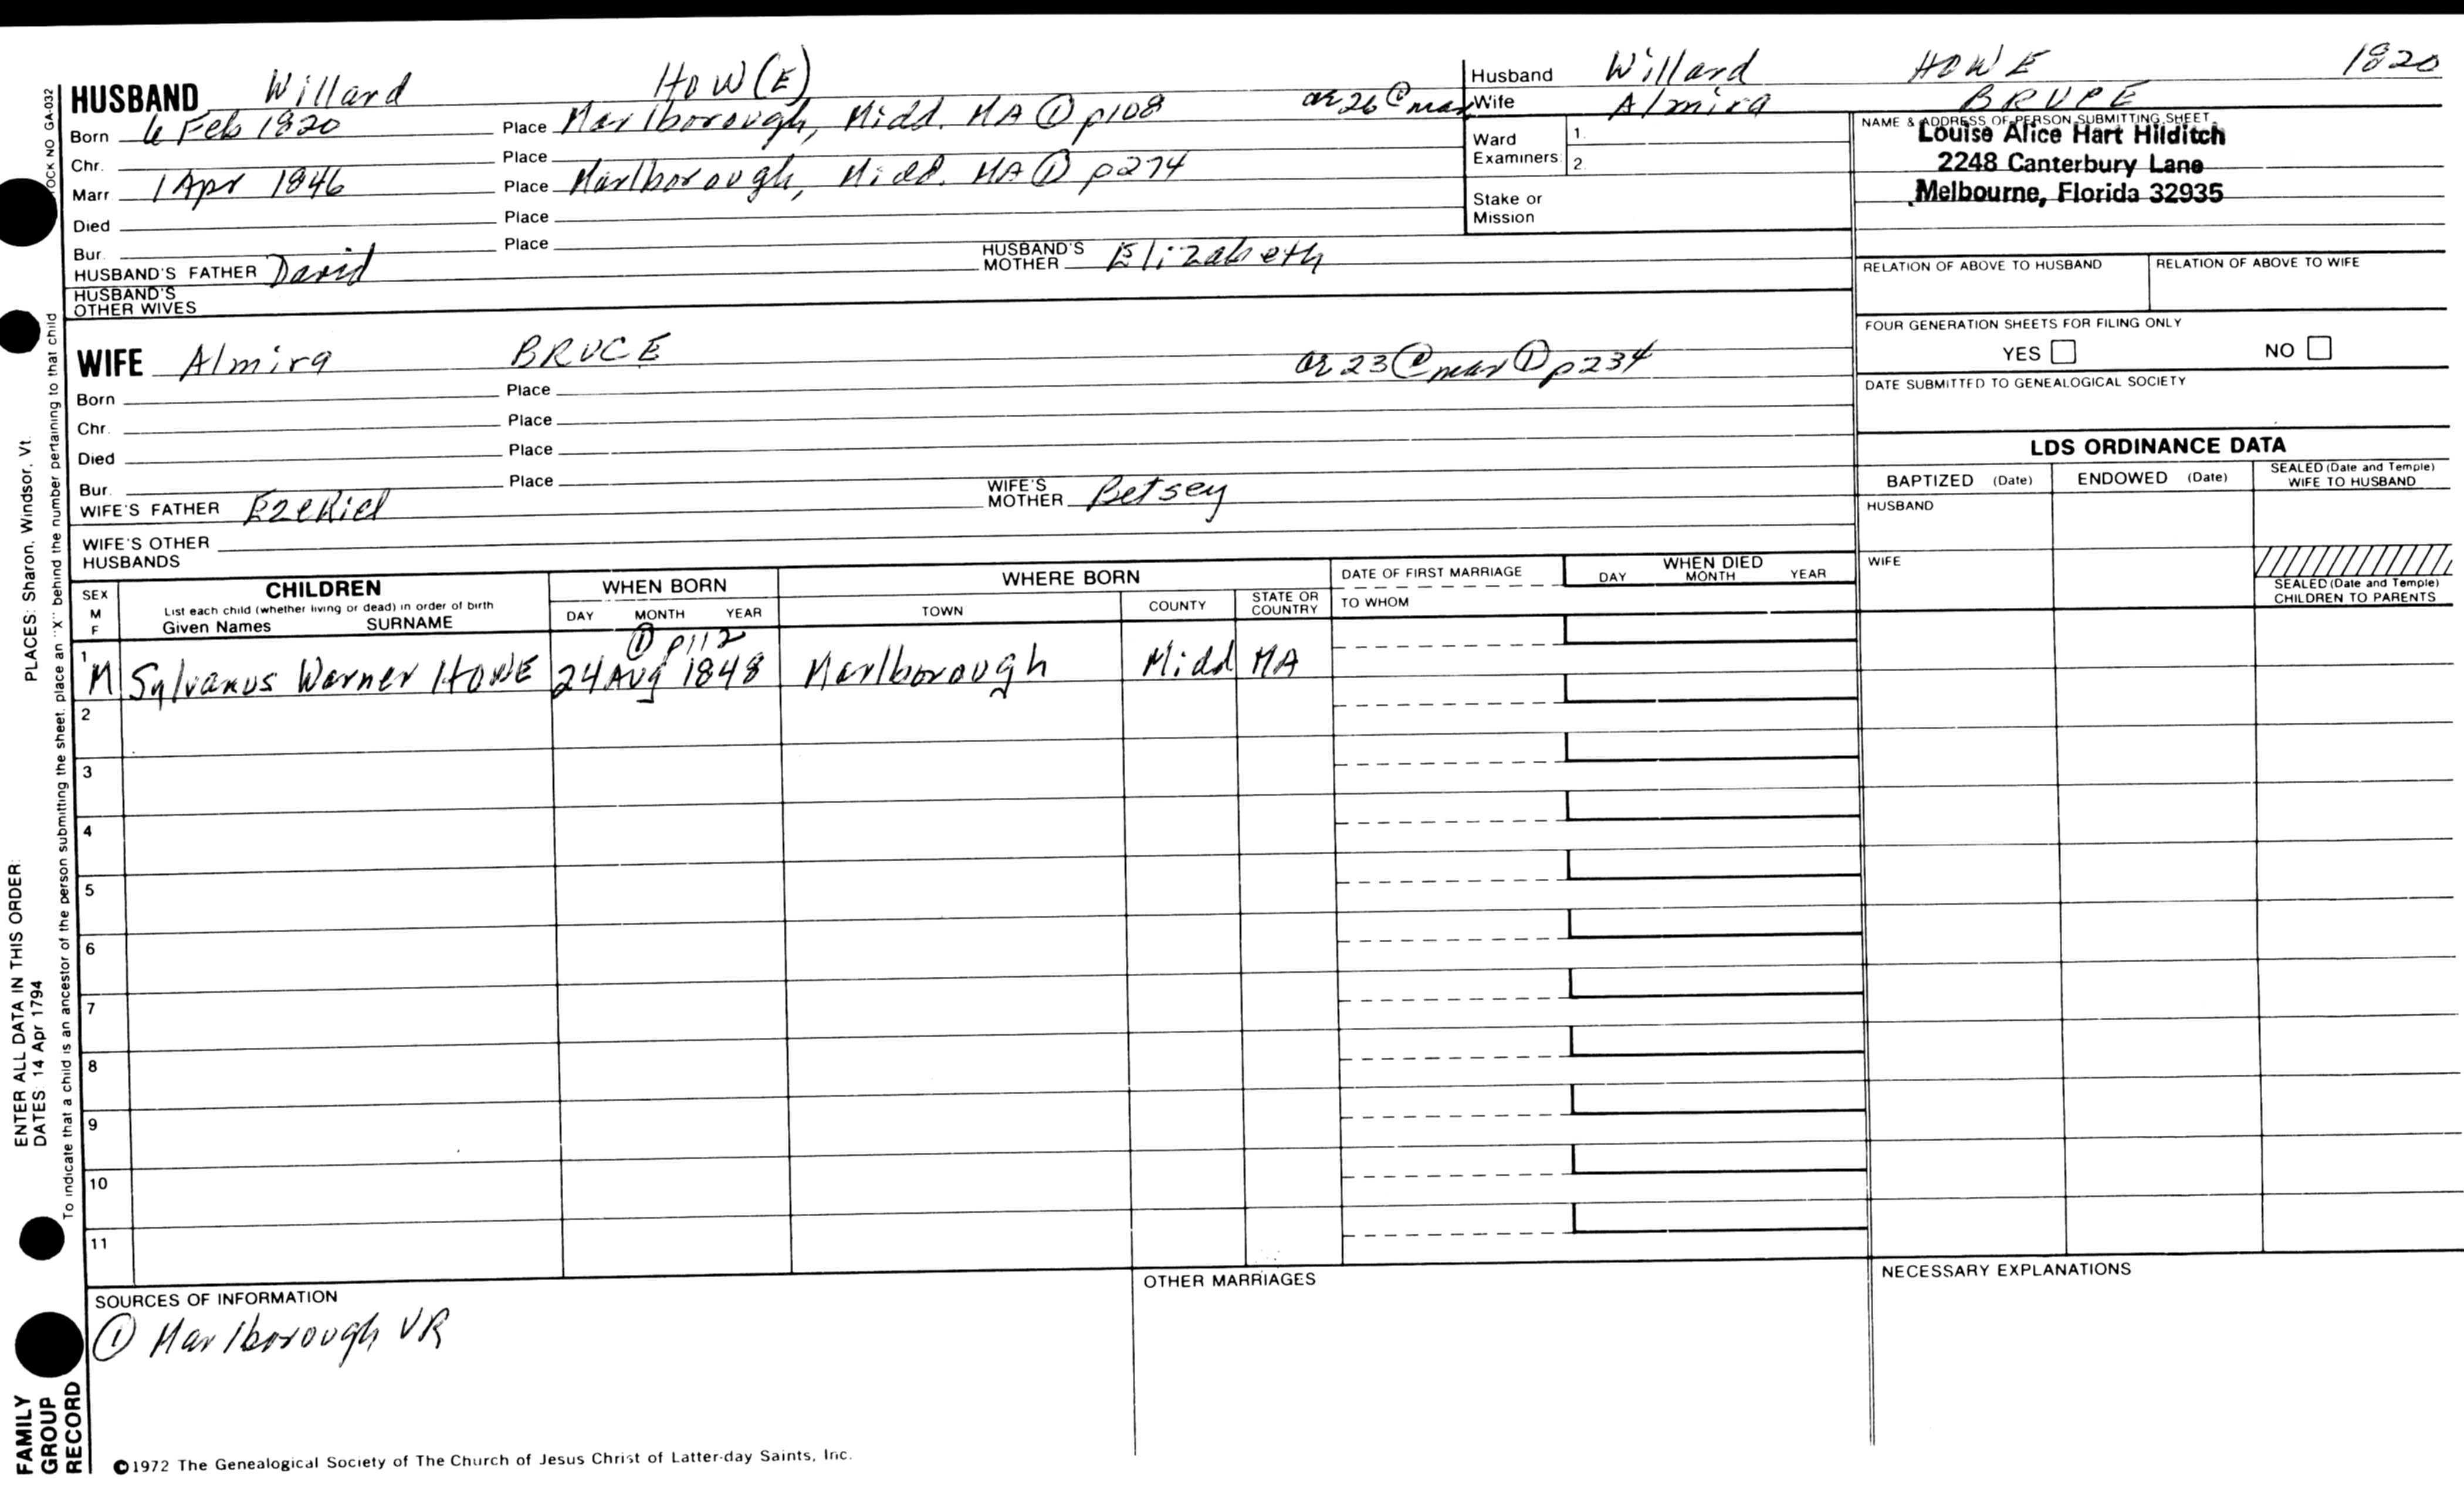 HUSBAND Willard HOW(E)
Born 6 Feb 1820 Place Marlborough, Midd. MA ① p108 ae 26 @ mar
Chr. Place
Marr 1 Apr 1846 Place Marlborough, Midd. MA ① p274
Died Place
Bur. Place
HUSBAND'S FATHER David HUSBAND'S MOTHER Elizabeth
HUSBAND'S OTHER WIVES
Husband Willard HOWE 1820
Wife Almira BRUCE
Ward Examiners: 1. 2.
Stake or Mission
NAME & ADDRESS OF PERSON SUBMITTING SHEET
Louise Alice Hart Hilditch
2248 Canterbury Lane
Melbourne, Florida 32935
RELATION OF ABOVE TO HUSBAND RELATION OF ABOVE TO WIFE
FOUR GENERATION SHEETS FOR FILING ONLY
YES NO
DATE SUBMITTED TO GENEALOGICAL SOCIETY
WIFE Almira BRUCE ae 23 @ mar ① p234
Born Place
Chr. Place
Died Place
Bur. Place
WIFE'S FATHER Ezekiel WIFE'S MOTHER Betsey
WIFE'S OTHER HUSBANDS
LDS ORDINANCE DATA
BAPTIZED (Date) ENDOWED (Date) SEALED (Date and Temple) WIFE TO HUSBAND
HUSBAND
WIFE
SEALED (Date and Temple) CHILDREN TO PARENTS
SEX M F
CHILDREN
List each child (whether living or dead) in order of birth
Given Names SURNAME
WHEN BORN
DAY MONTH YEAR
WHERE BORN
TOWN COUNTY STATE OR COUNTRY
DATE OF FIRST MARRIAGE
TO WHOM
WHEN DIED
DAY MONTH YEAR
① p112
1 M Sylvanus Warner HOWE 24 Aug 1848 Marlborough Midd MA
2
3
4
5
6
7
8
9
10
11
SOURCES OF INFORMATION
① Marlborough VR
OTHER MARRIAGES
NECESSARY EXPLANATIONS
©1972 The Genealogical Society of The Church of Jesus Christ of Latter-day Saints, Inc.
FAMILY
GROUP
RECORD
ENTER ALL DATA IN THIS ORDER:
DATES: 14 Apr 1794
PLACES: Sharon, Windsor, Vt.
To indicate that a child is an ancestor of the person submitting the sheet, place an "X" behind the number pertaining to that child
OCK NO GA-032